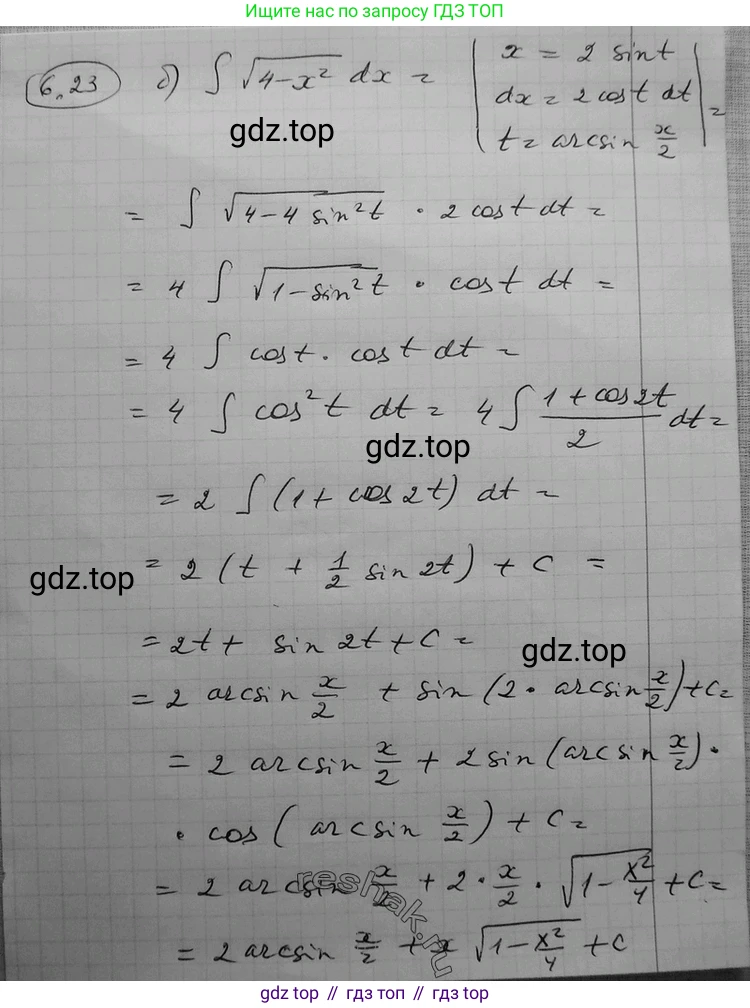 Больше решений по запросу ГДЗ ТОП
6.23 б) ∫ √(4-x²) dx = | x = 2 sin t
dx = 2 cos t dt
t = arcsin x/2 | =
gdz.top
= ∫ √(4-4 sin²t) · 2 cos t dt =
= 4 ∫ √(1-sin²t) · cos t dt =
= 4 ∫ cos t · cos t dt =
= 4 ∫ cos²t dt = 4 ∫ (1 + cos 2t)/2 dt =
gdz.top
= 2 ∫ (1 + cos 2t) dt =
gdz.top
= 2 (t + 1/2 sin 2t) + C =
= 2t + sin 2t + C =
gdz.top
= 2 arcsin x/2 + sin (2 · arcsin x/2) + C =
= 2 arcsin x/2 + 2 sin (arcsin x/2) ·
· cos (arcsin x/2) + C =
= 2 arcsin x/2 + 2 · x/2 · √(1 - x²/4) + C =
reshak.ru
= 2 arcsin x/2 + x √(1 - x²/4) + C
gdz.top // гдз.топ // gdz.top // гдз.топ